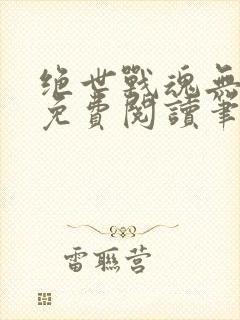 绝世戰魂無
免費閱讀筆
雷聯营